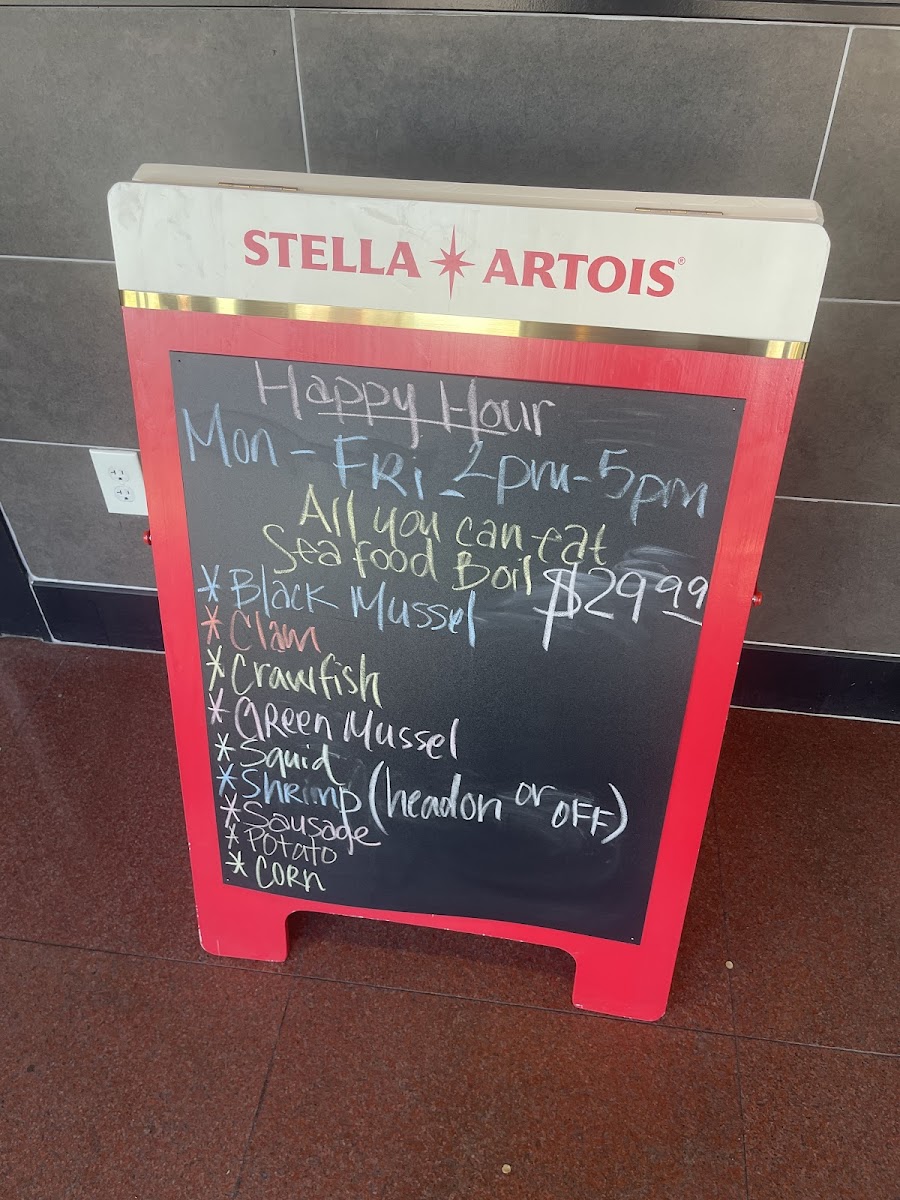 STELLA ARTOIS®
Happy Hour
Mon - FRi 2pm-5pm
All you can eat
Sea food Boil $29.99
* Black Mussel
* Clam
* Crawfish
* GReen Mussel
* Squid
* ShRimp (headon or OFF)
* Sausage
* Potato
* CORn